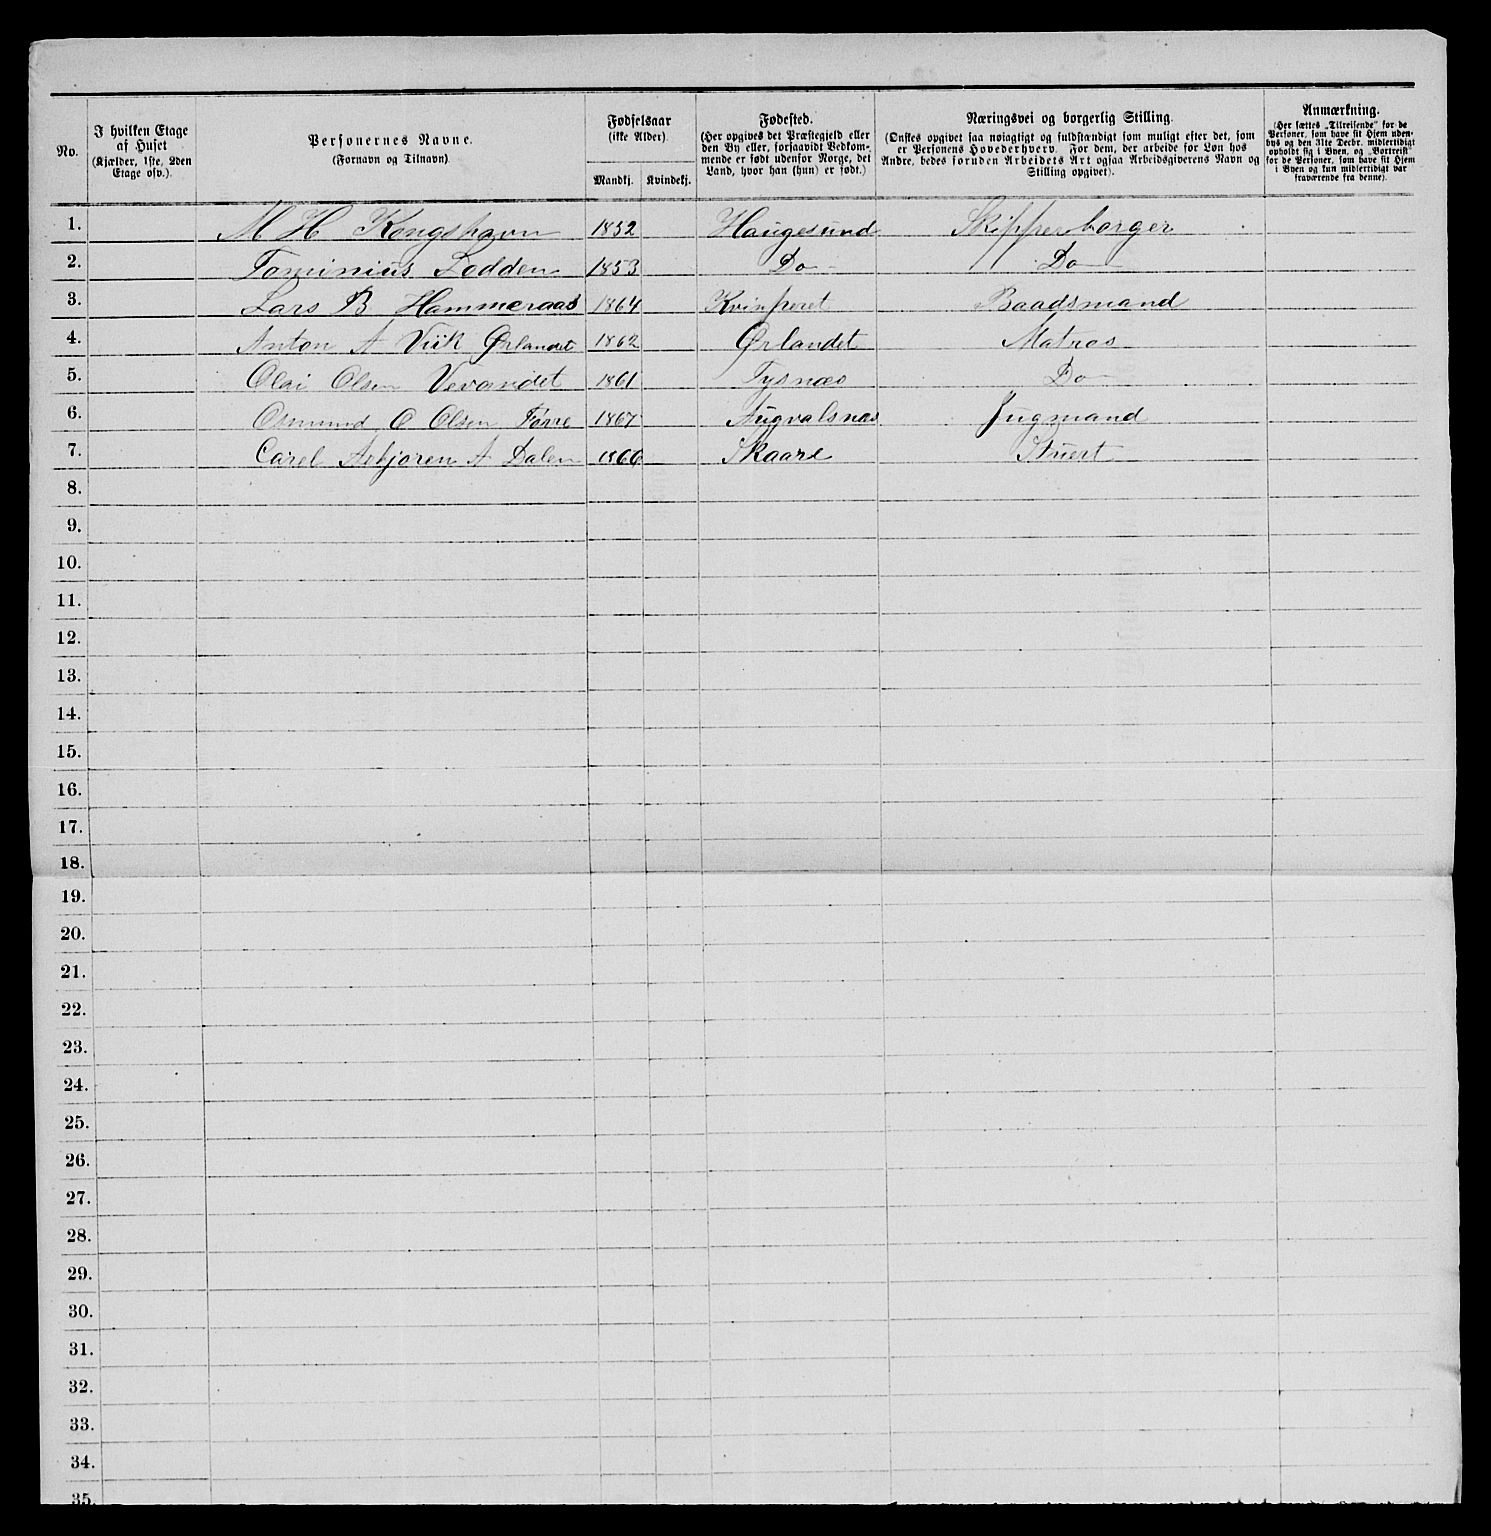 No.
I hvilken Etage af Huset (Kjælder, 1ste, 2den Etage osv.).
Personernes Navne. (Fornavn og Tilnavn).
Fødselsaar (ikke Alder).
Mandkj. Kvindekj.
Fødested. (Her opgives det Præstegjeld eller den By eller, forsaavidt Vedkommende er født udenfor Norge, det Land, hvor han (hun) er født.)
Næringsvei og borgerlig Stilling. (Ønskes opgivet saa nøiagtigt og fuldstændigt som muligt efter det, som er Personens Hovederhverv. For dem, der arbeide for Løn hos Andre, bedes foruden Arbeidets Art ogsaa Arbeidsgiverens Navn og Stilling opgivet).
Anmærkning. (Her sættes „Tilreisende" for de Personer, som have sit Hjem udenbys og den 31te Decbr. midlertidigt opholdt sig i Byen, og „Bortreist" for de Personer, som have sit Hjem i Byen og kun midlertidigt var fraværende fra denne).
1. M H Kongshavn 1852 Haugesund Skipperborger
2. Tominius Lodden 1853 Do Do
3. Lars B Hammeraas 1864 Baadsmand
4. Anton A Viik Ørlandet 1862 Ørlandet Matros
5. Olai Olsen 1861 Tysnæs Do
6. Osmund O Olsen Førre 1867 Augvalsnæs Jugmand
7. Carel Asbjøren A Dalen 1866 Skaare Stuert
8.
9.
10.
11.
12.
13.
14.
15.
16.
17.
18.
19.
20.
21.
22.
23.
24.
25.
26.
27.
28.
29.
30.
31.
32.
33.
34.
35.